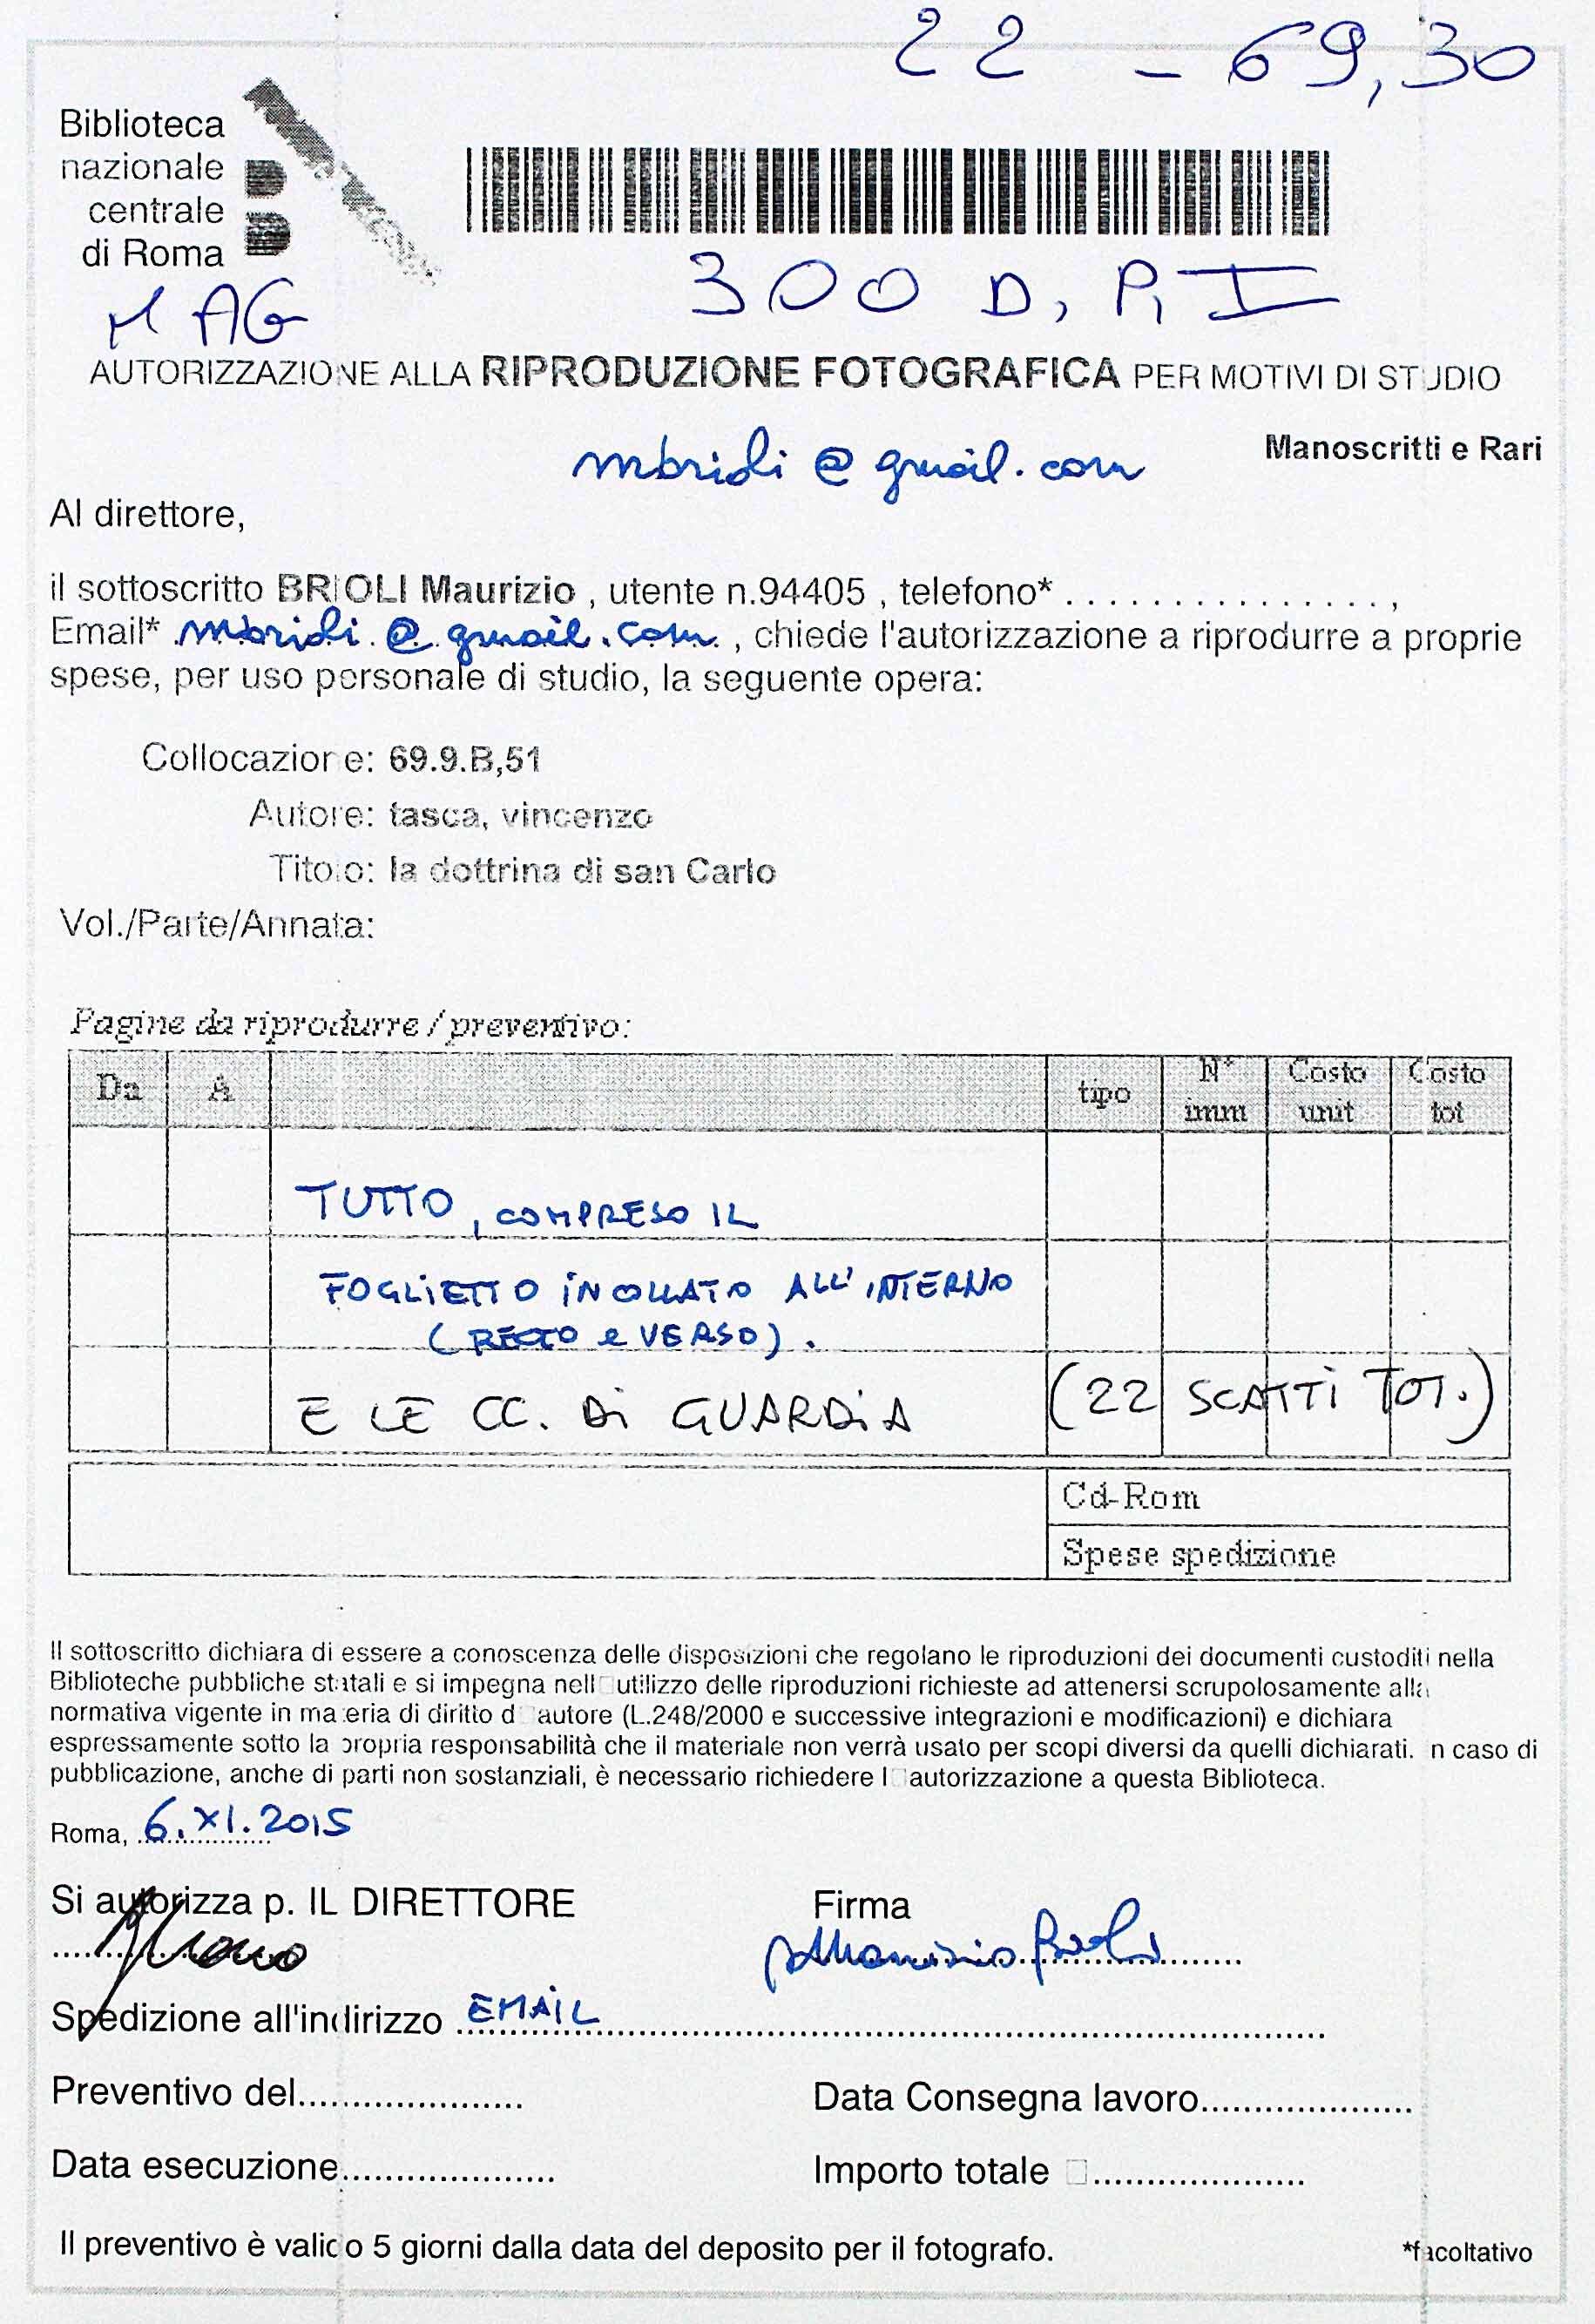 22 - 69,30
Biblioteca
nazionale
centrale
di Roma
MAG
300 D, P, I
AUTORIZZAZIONE ALLA RIPRODUZIONE FOTOGRAFICA PER MOTIVI DI STUDIO
mbrioli@gmail.com
Manoscritti e Rari
Al direttore,
il sottoscritto BRIOLI Maurizio , utente n.94405 , telefono* . . . . . . . . . . . . . . . . ,
Email* mbrioli@gmail.com , chiede l'autorizzazione a riprodurre a proprie
spese, per uso personale di studio, la seguente opera:
Collocazione: 69.9.B,51
Autore: tasca, vincenzo
Titolo: la dottrina di san Carlo
Vol./Parte/Annata:
Pagine da riprodurre / preventivo:
Da A tipo N° imm Costo unit Costo tot
TUTTO, COMPRESO IL
FOGLIETTO INCOLLATO ALL'INTERNO
(RECTO e VERSO).
E LE CC. DI GUARDIA (22 SCATTI TOT.)
Cd-Rom
Spese spedizione
Il sottoscritto dichiara di essere a conoscenza delle disposizioni che regolano le riproduzioni dei documenti custoditi nella
Biblioteche pubbliche statali e si impegna nell□utilizzo delle riproduzioni richieste ad attenersi scrupolosamente alla
normativa vigente in materia di diritto d□autore (L.248/2000 e successive integrazioni e modificazioni) e dichiara
espressamente sotto la propria responsabilità che il materiale non verrà usato per scopi diversi da quelli dichiarati. In caso di
pubblicazione, anche di parti non sostanziali, è necessario richiedere l□autorizzazione a questa Biblioteca.
Roma, 6.XI.2015
Si autorizza p. IL DIRETTORE
Firma
Maurizio Brioli
Spedizione all'indirizzo EMAIL
Preventivo del.....................
Data Consegna lavoro....................
Data esecuzione....................
Importo totale □....................
Il preventivo è valido 5 giorni dalla data del deposito per il fotografo.
*facoltativo